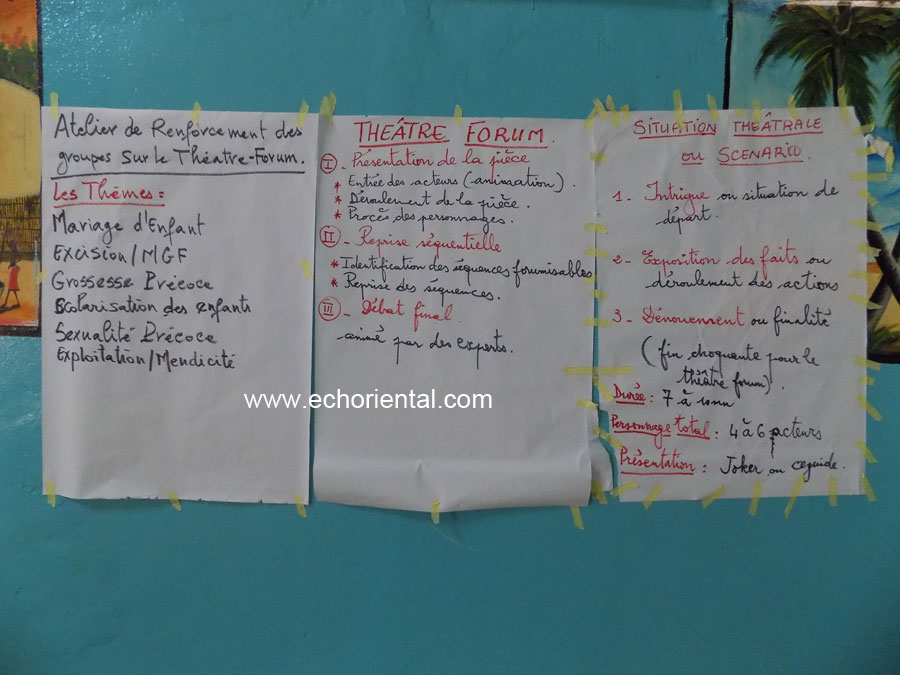 Atelier de Renforcement des
groupes sur le Théatre-Forum.
Les Thèmes :
Mariage d'Enfant
Excision/MGF
Grossesse Précoce
Scolarisation des enfants
Sexualité Précoce
Exploitation/Mendicité
THEÂTRE FORUM.
I - Présentation de la pièce
* Entrée des acteurs (animation).
* Déroulement de la pièce.
* Procès des personnages.
II - Reprise séquentielle
* Identification des séquences forumisables
* Reprise des séquences.
III - Débat final.
animé par des experts.
SITUATION THEÂTRALE
ou SCENARIO.
1. Intrigue ou situation de
départ.
2- Exposition des faits ou
déroulement des actions
3- Dénouement ou finalité
(fin choquante pour le
théâtre forum).
Durée : 7 à 10mn
Personnage total : 4 à 6 acteurs
Présentation : Joker ou
www.echoriental.com